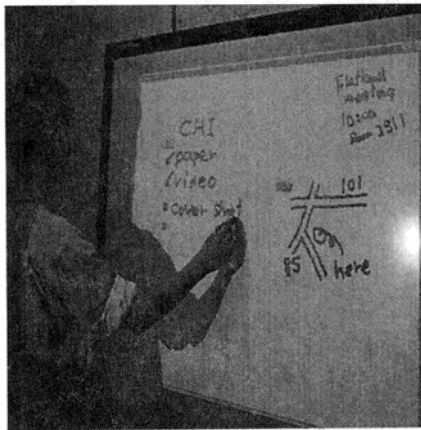 CHI
paper
video
cover
Flatland
meeting
10:00
Room
101
85
here